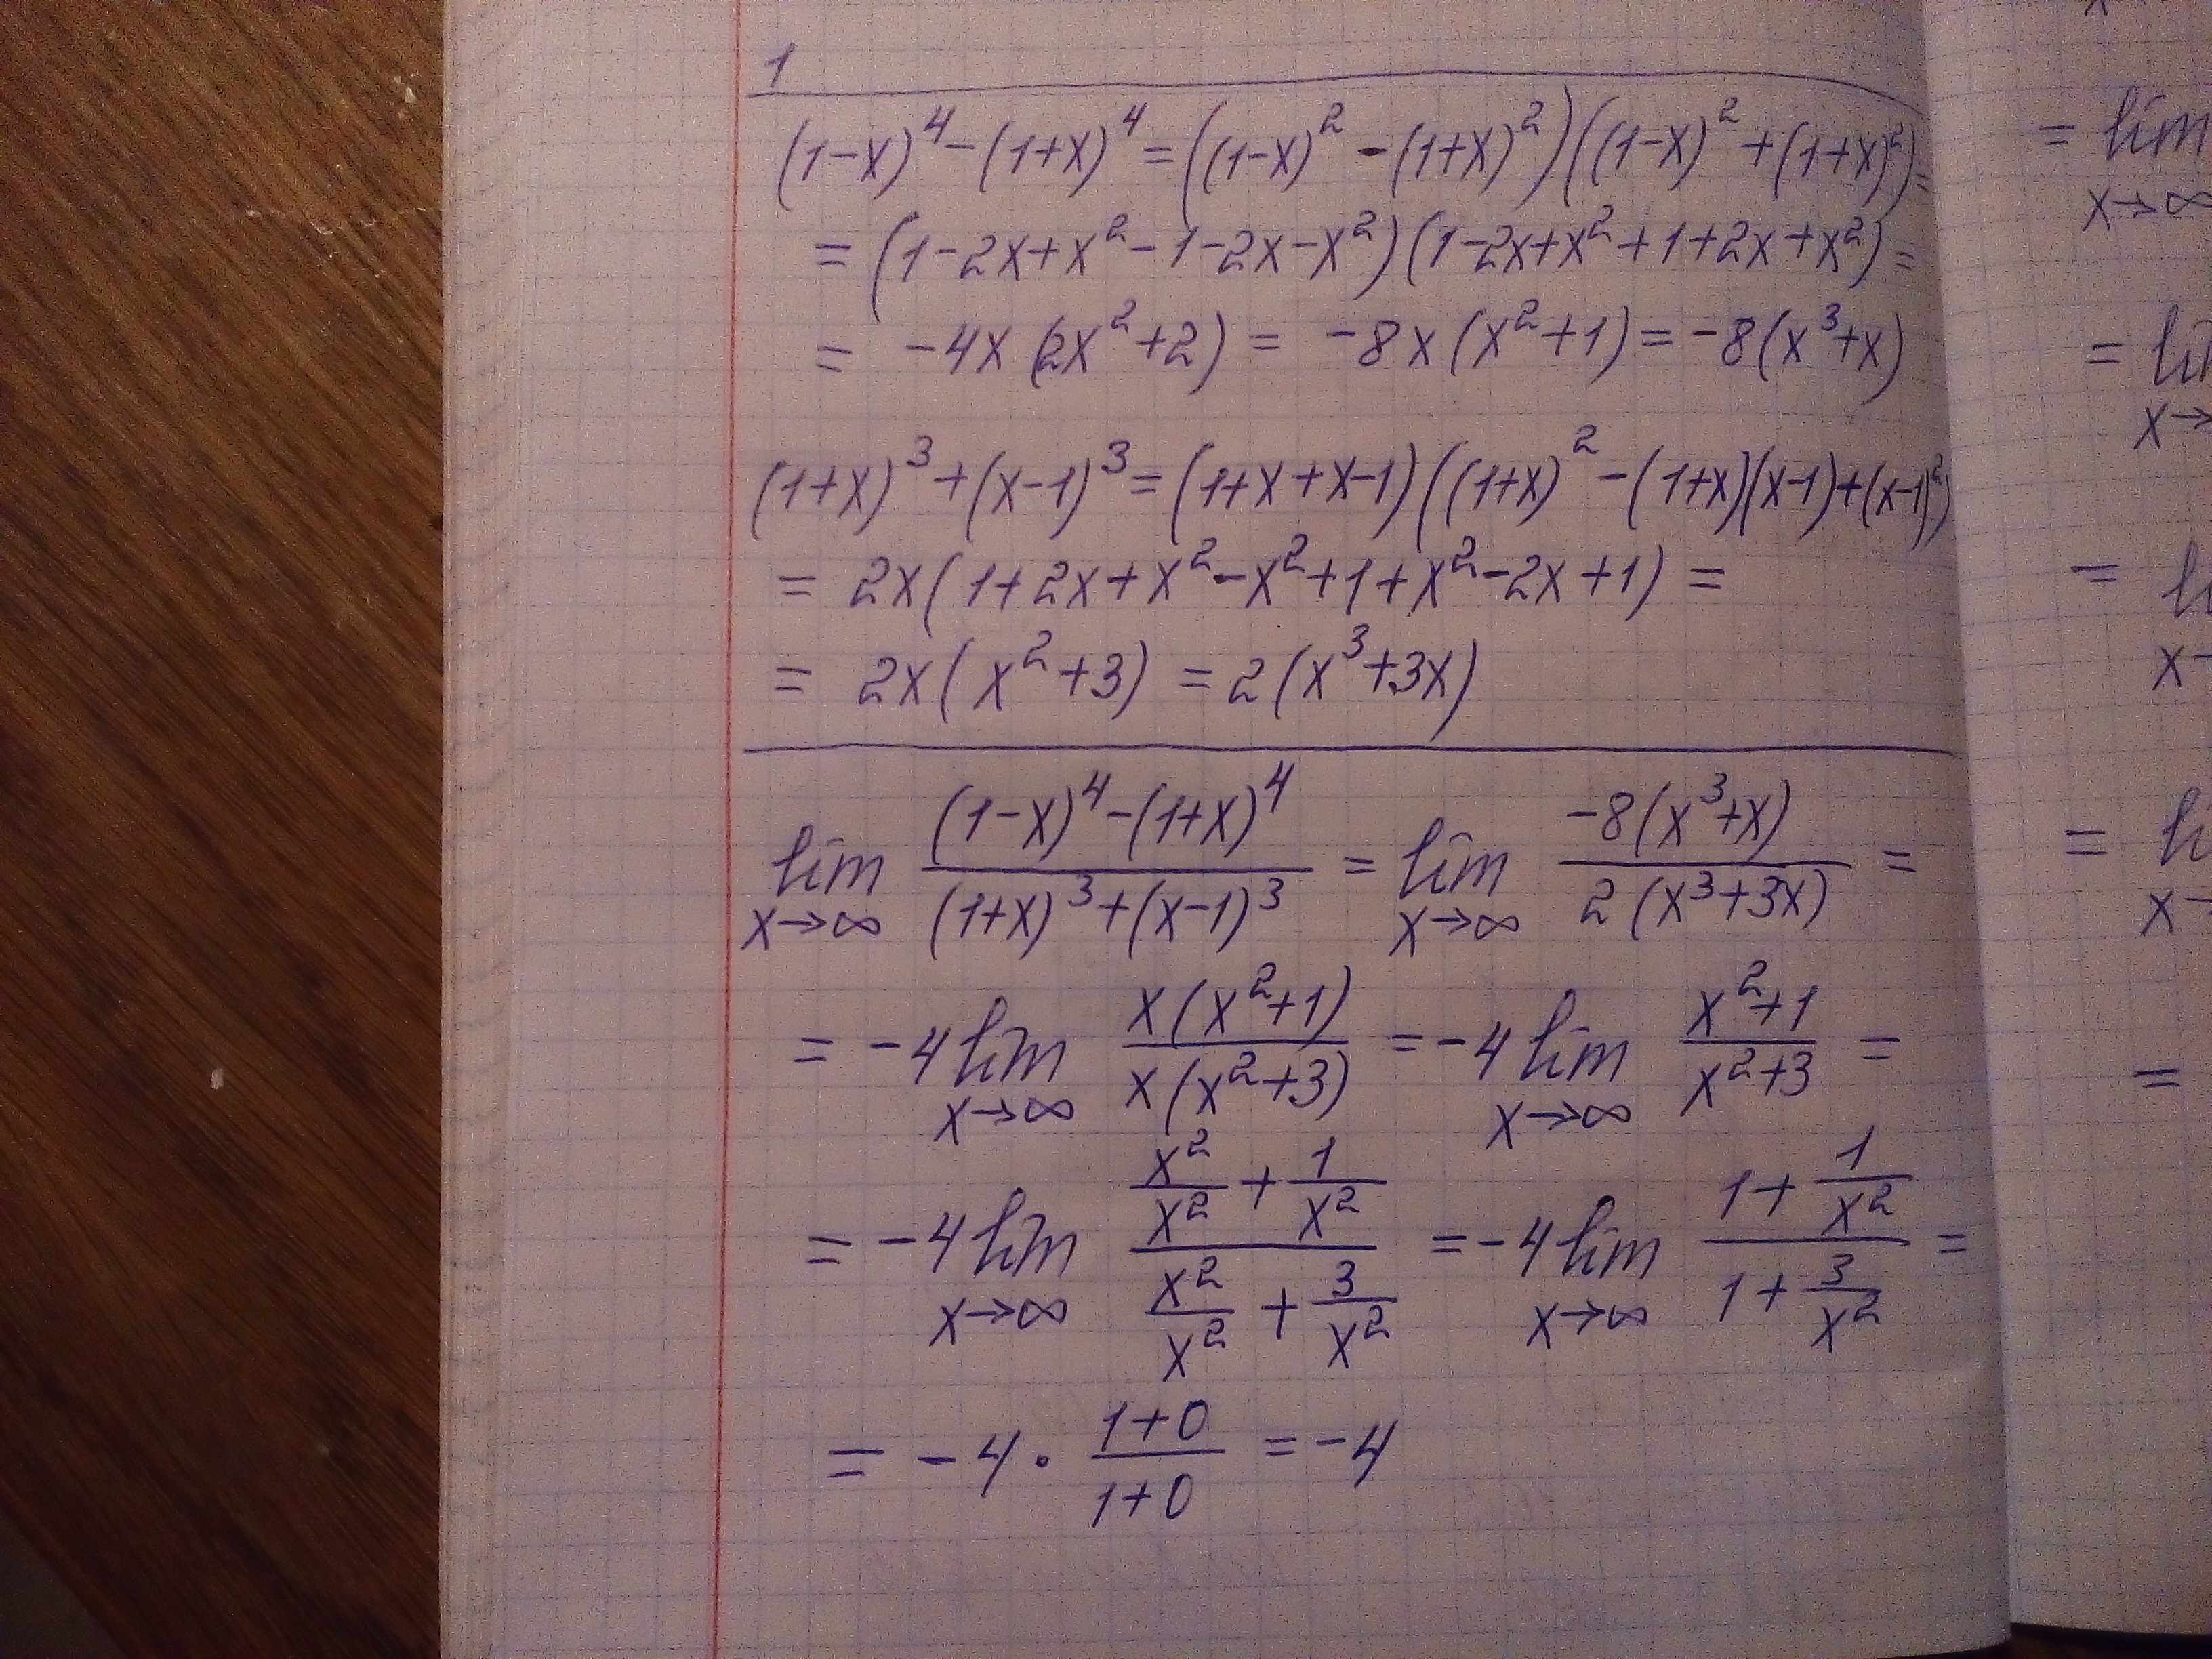 1
(1-x)^4-(1+x)^4=((1-x)^2-(1+x)^2)((1-x)^2+(1+x)^2)=
=(1-2x+x^2-1-2x-x^2)(1-2x+x^2+1+2x+x^2)=
= -4x(2x^2+2) = -8x(x^2+1)=-8(x^3+x)
(1+x)^3+(x-1)^3=(1+x+x-1)((1+x)^2-(1+x)(x-1)+(x-1)^2)
= 2x(1+2x+x^2-x^2+1+x^2-2x+1) =
= 2x(x^2+3) = 2(x^3+3x)
lim x→∞ ((1-x)^4-(1+x)^4)/((1+x)^3+(x-1)^3) = lim x→∞ (-8(x^3+x))/(2(x^3+3x)) =
= -4 lim x→∞ (x(x^2+1))/(x(x^2+3)) = -4 lim x→∞ (x^2+1)/(x^2+3) =
= -4 lim x→∞ (x^2/x^2+1/x^2)/(x^2/x^2+3/x^2) = -4 lim x→∞ (1+1/x^2)/(1+3/x^2) =
= -4 · (1+0)/(1+0) = -4
= lim
x→∞
=
x→
=
x
=
x
=